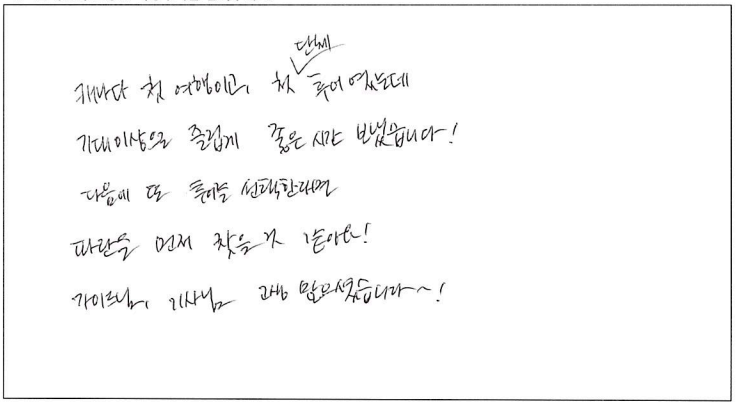 캐나다 첫 여행이고, 첫 단체 투어였는데
기대이상으로 즐겁게 좋은 시간 보냈습니다!
다음에 또 투어를 선택한다면
파란을 먼저 찾을 것 같아요!
가이드님, 기사님 고생 많으셨습니다~!